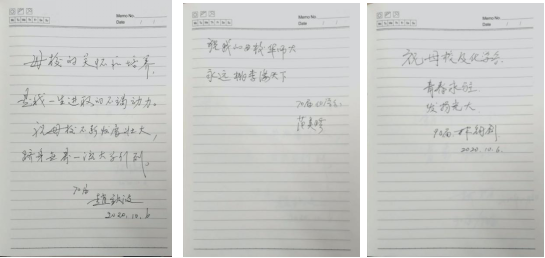 Memo No.
Date / /
母校的关怀和培养,
是我一生进取的不竭动力。
祝母校不断发展壮大,
跻身世界一流大学行列。
70届
2020.10.6
Memo No.
Date / /
祝我的母校华师大
永远桃李满天下
70届
Memo No.
Date / /
祝母校及化学系
青春永驻
发扬光大
70届
2020.10.6.